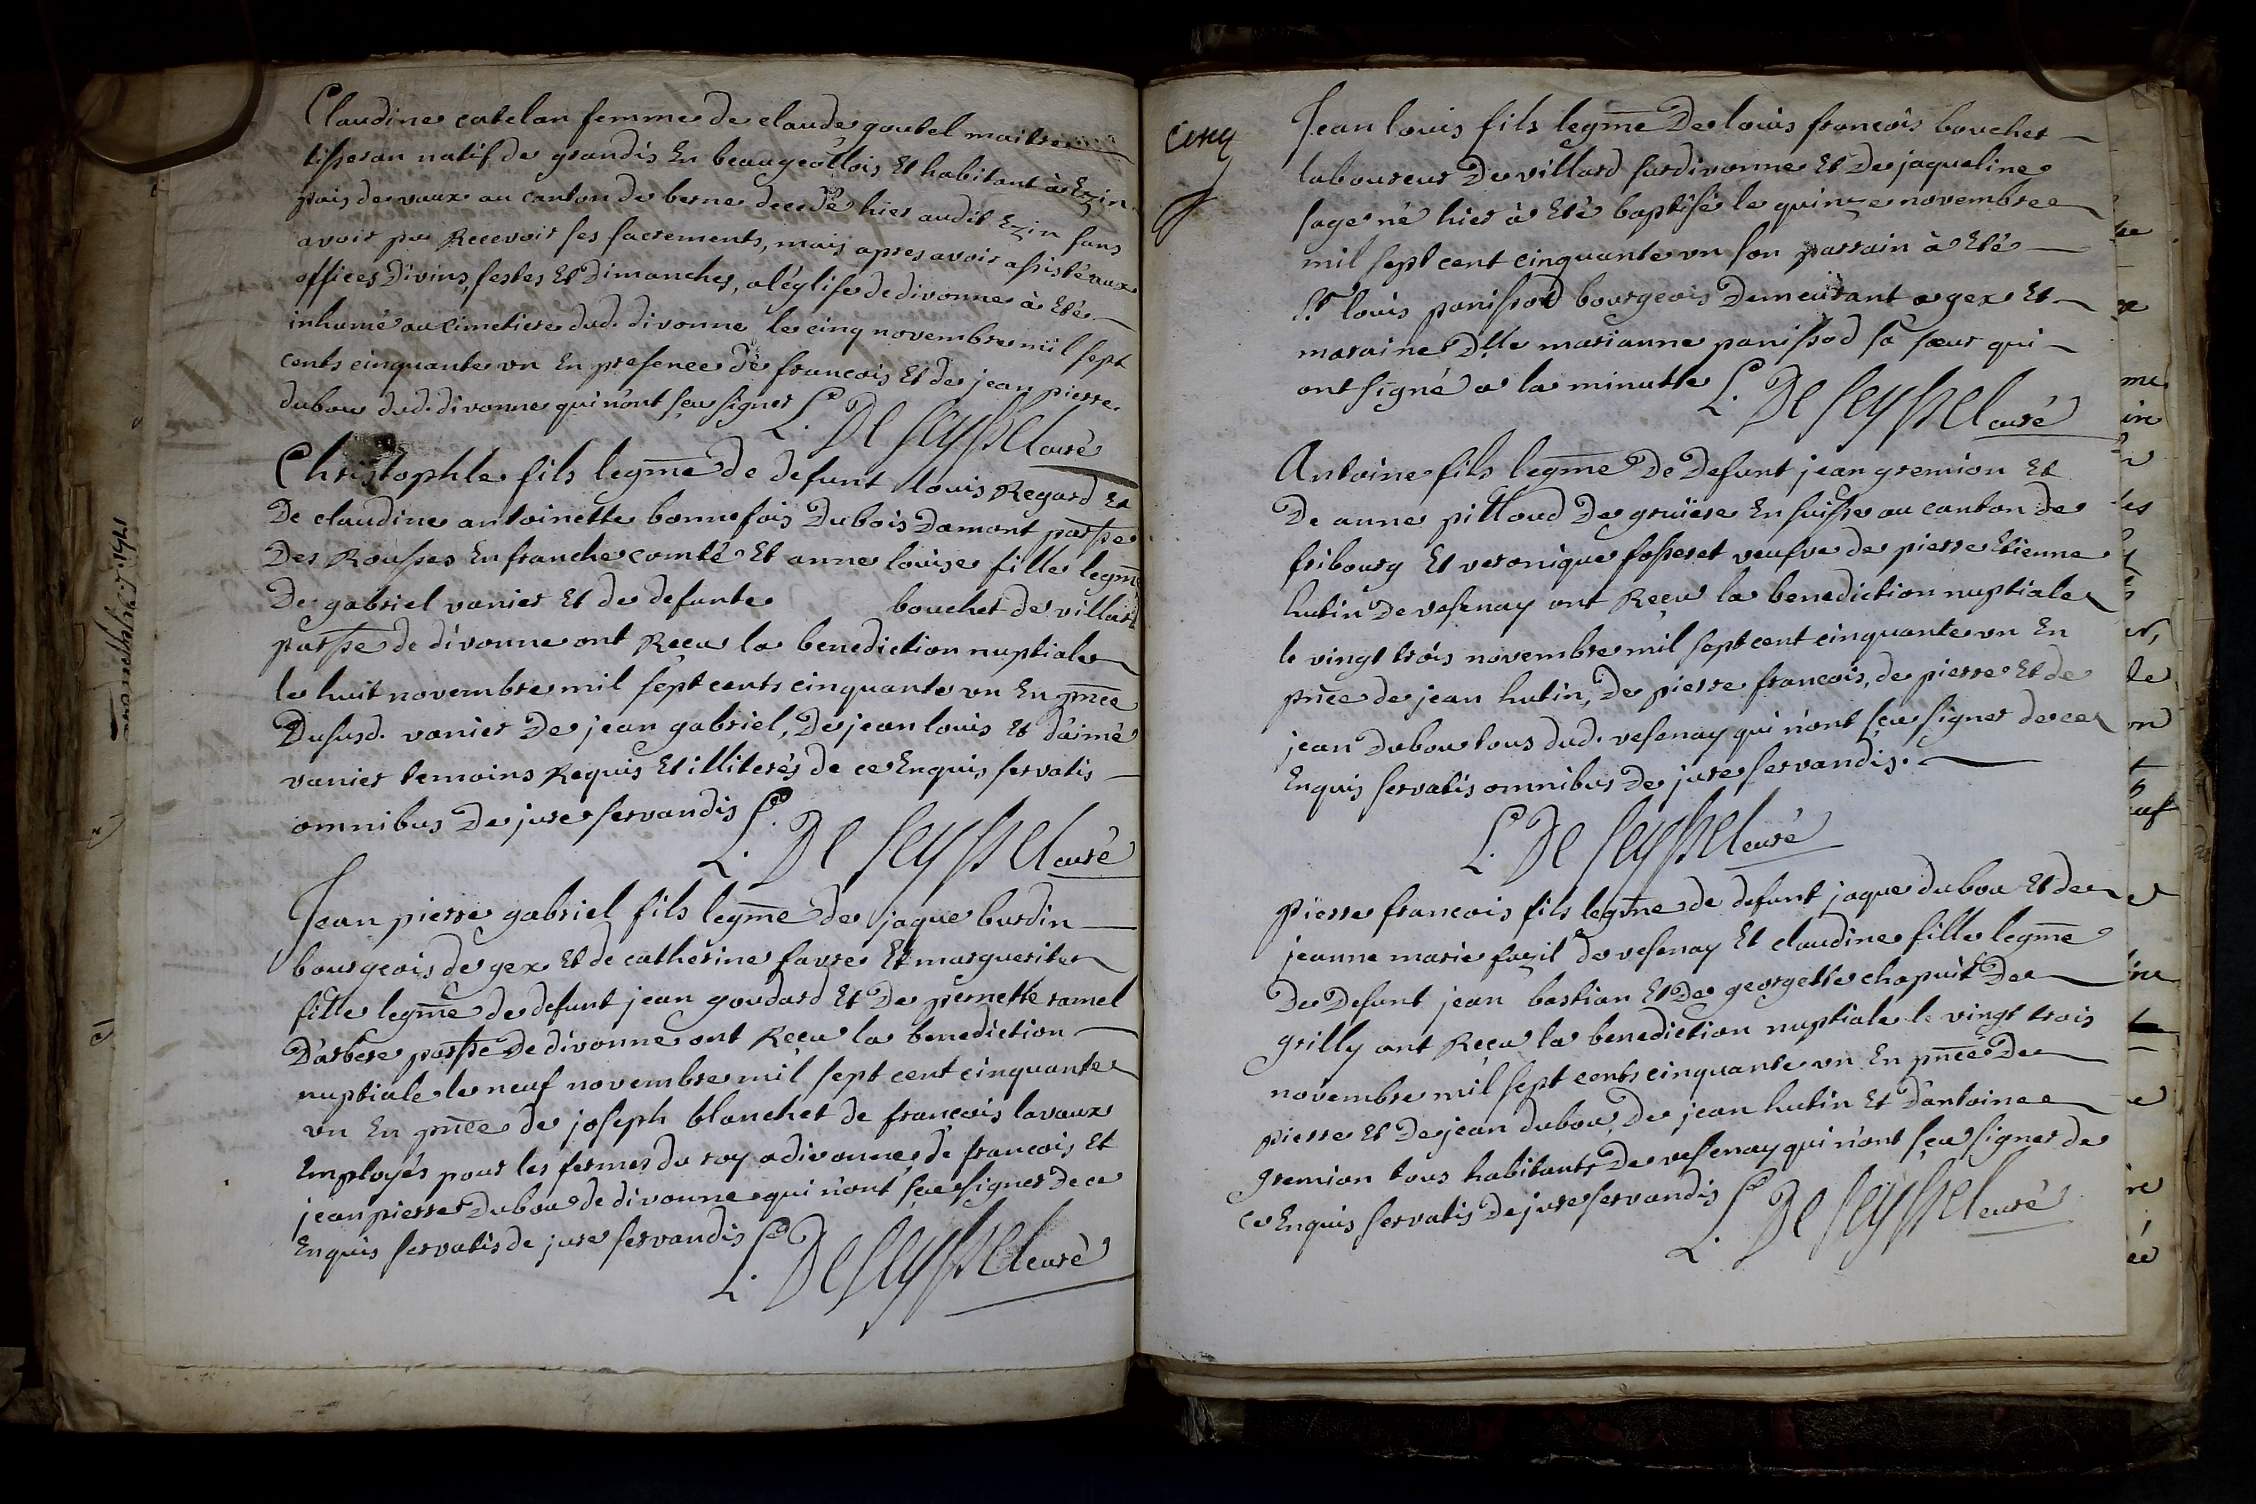 Claudine catelan femme de claude goutel maitre
tisseran natif de grandis En beaugeollois Et habitant à Ezin
pais de vaux au canton de berne decedé hier audit Ezin sans
avoir pu Recevoir ses sacrements, mais apres avoir assisté aux
offices Divins, festes Et Dimanches, a l'eglise de divonne à Eté
inhumé au cimetiere dud. divonne le cinq novembre mil sept
cents cinquante vn En presence de francois Et de jean pierre
dubou dud. divonne qui n'ont sçu signer L. De Seyssel curé
Christophle fils legme de defunt louis Regard Et
De claudine antoinette bonnefois Dubois Damont parsse
Des Rousses En franche comté Et anne louise fille legme
De gabriel vanier Et de defunte bouchet de villard
parsse de divonne ont Reçu la benediction nuptiale
le huit novembre mil sept cents cinquante vn En pnce
Dususd. vanier De jean gabriel, De jean louis Et d'aimé
vanier temoins Requis Et illiterés de ce Enquis servatis
omnibus De jure servandis
L. De Seyssel curé
Jean pierre gabriel fils legme de jaque burdin
bourgeois de gex Et de catherine favre Et marguerite
fille legme de defunt jean goudard Et De pernette ramel
D'arbere parsse De divonne ont Reçu la benediction
nuptiale le neuf novembre mil sept cent cinquante
vn En pnce de joseph blanchet de francois lavaux
Employés pour les fermes du roy a divonne de francois Et
jean pierre Dubou de divonne qui n'ont sçu signer De ce
Enquis servatis de jure servandis
L. De Seyssel curé
cinq
Jean louis fils legme De louis francois bouchet
laboureur De villard sur divonne Et De jaqueline
sage né hier à Eté baptisé le quinze novembre
mil sept cent cinquante vn son parrain à Eté
Sr louis panissod bourgeois Demeurant a gex Et
maraine Dlle marianne panissod sa sœur qui
ont signé a la minutte L. De Seyssel curé
Antoine fils legme De Defunt jean gremion Et
De anne pittoud De gruiere En suisse au canton de
fribourg Et veronique fosseret veufve de pierre Etienne
hutin De vesenay ont Reçu la benediction nuptiale
le vingt trois novembre mil sept cent cinquante vn En
pnce de jean hutin, De pierre francois, de pierre Et de
jean Dubou tous dud. vesenay qui n'ont sçu signer de ce
Enquis servatis omnibus De jure servandis.
L. De Seyssel curé
pierre francois fils legme de defunt jaque dubou Et de
jeanne marie fazil de vesenay Et claudine fille legme
De Defunt jean bastian Et De georgette chapuit De
grilly ont Reçu la benediction nuptiale le vingt trois
novembre mil sept cents cinquante vn En pnce De
pierre Et De jean dubou, De jean hutin Et D'antoine
gremion tous habitants De vesenay qui n'ont sçu signer de
ce Enquis servatis De jure servandis
L. De Seyssel curé